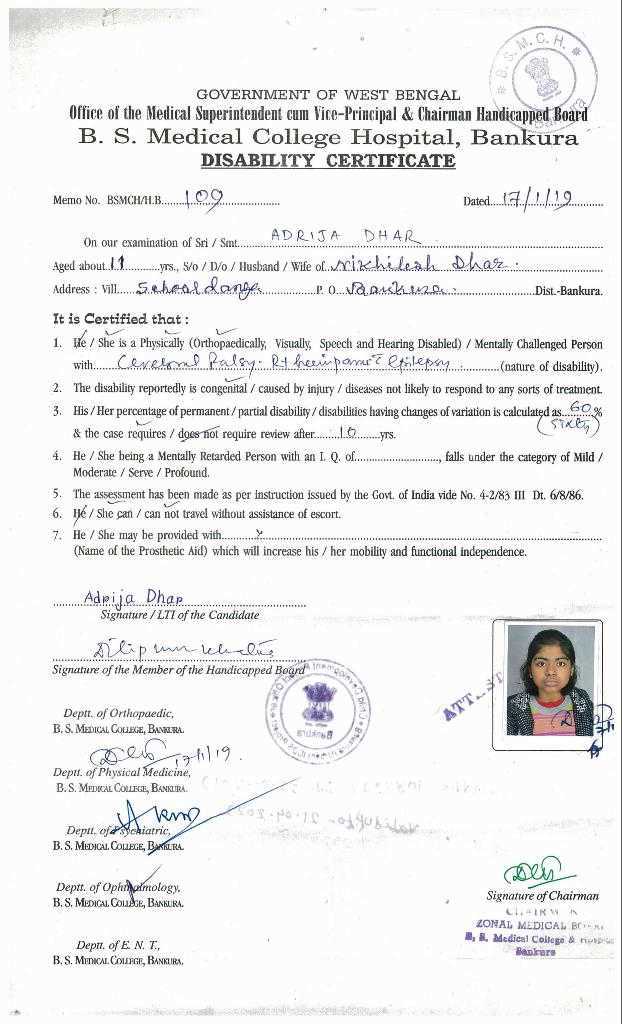 B. S. M. C. H.
GOVERNMENT OF WEST BENGAL
Office of the Medical Superintendent cum Vice-Principal & Chairman Handicapped Board
B. S. Medical College Hospital, Bankura
DISABILITY CERTIFICATE
Memo No. BSMCH/H.B. 109 Dated 17/1/19
On our examination of Sri / Smt. ADRIJA DHAR
Aged about 11 yrs., S/o / D/o / Husband / Wife of Nikhilesh Dhar.
Address : Vill. School danga P. O. Bankura. Dist.-Bankura.
It is Certified that :
1. He / She is a Physically (Orthopaedically, Visually, Speech and Hearing Disabled) / Mentally Challenged Person
with Cerebral Palsy - Rt Epilepsy (nature of disability).
2. The disability reportedly is congenital / caused by injury / diseases not likely to respond to any sorts of treatment.
3. His / Her percentage of permanent / partial disability / disabilities having changes of variation is calculated as 60 %
(Sixty)
& the case requires / does not require review after 10 yrs.
4. He / She being a Mentally Retarded Person with an I. Q. of, falls under the category of Mild /
Moderate / Serve / Profound.
5. The assessment has been made as per instruction issued by the Govt. of India vide No. 4-2/83 III Dt. 6/8/86.
6. He / She can / can not travel without assistance of escort.
7. He / She may be provided with
(Name of the Prosthetic Aid) which will increase his / her mobility and functional independence.
Adrija Dhar
Signature / LTI of the Candidate
Signature of the Member of the Handicapped Board
ATTEST
Deptt. of Orthopaedic,
B. S. MEDICAL COLLEGE, BANKURA.
17/1/19.
Deptt. of Physical Medicine,
B. S. MEDICAL COLLEGE, BANKURA.
Deptt. of Psychiatric,
B. S. MEDICAL COLLEGE, BANKURA.
Deptt. of Ophthalmology,
B. S. MEDICAL COLLEGE, BANKURA.
Signature of Chairman
CHAIRMAN
ZONAL MEDICAL BOARD
B. S. Medical College & Hospital
Bankura
Deptt. of E. N. T.,
B. S. MEDICAL COLLEGE, BANKURA.